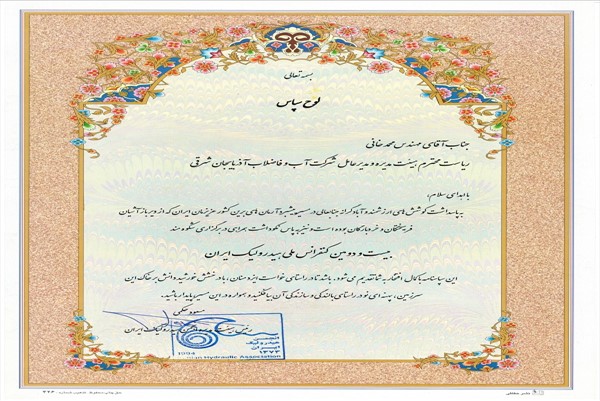 بسمه تعالی
لوح سپاس
جناب آقای مهندس محمدخانی
ریاست محترم هیئت مدیره و مدیرعامل شرکت آب و فاضلاب آذربایجان شرقی
با اهدای سلام،
به پاسداشت کوشش های ارزشمند و آبادگرانه جنابعالی در مسیر پیشبرد آرمان های برین کشور عزیزمان ایران که از دیرباز آشیان
فرهیختگان و خردبارگان بوده است و نیز به پاس نکوداشت همراهی در برگزاری شکوهمند
بیست و دومین کنفرانس ملی هیدرولیک ایران
این سپاسنامه با کمال افتخار به شما تقدیم می شود. باشد تا در راستای خواست ایزد منان، با درخشش خورشید دانش بر خاک این
سرزمین، پهنه ای نو در راستای بالندگی و سازندگی آن بیافکنید و همواره در این مسیر پایدار باشید.
رئیس هیئت مدیره انجمن هیدرولیک ایران
انجمن
هیدرولیک
ایران
۱۳۷۳
1994
Iranian Hydraulic Association